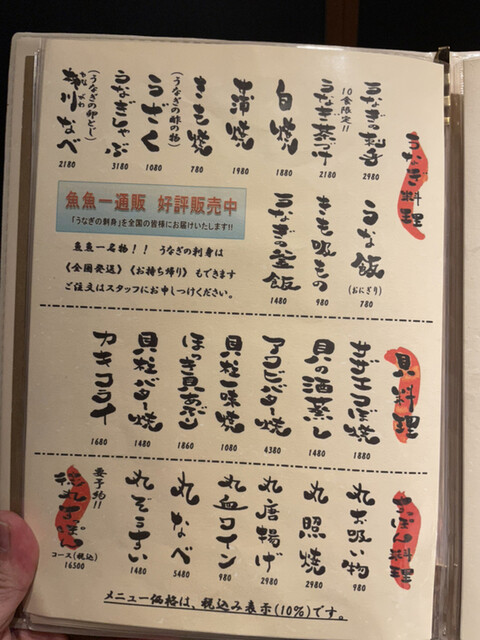 うなぎ料理
うなぎの刺身
2980
10食限定!!
うなぎ茶づけ
2180
白焼
1880
蒲焼
1980
きも焼
780
(うなぎの酢の物)
うざく
1080
うなぎしゃぶ
3180
(うなぎの卵とじ)
柳川なべ
やながわ
2180
うな飯
(おにぎり)
780
きも吸もの
980
うなぎの釜飯
1480
魚魚一通販 好評販売中
「うなぎの刺身」を全国の皆様にお届けいたします!!
魚魚一名物!! うなぎの刺身は
《全国発送》《お持ち帰り》もできます
ご注文はスタッフにお申しつけください。
貝料理
サザエつぼ焼
1880
貝の酒蒸し
1480
アワビバター焼
4380
貝柱一味焼
1080
ほっき貝あぶり
1860
貝柱バター焼
1480
カキフライ
1680
すっぽん料理
丸お吸い物
980
丸照焼
2980
丸唐揚げ
2980
丸血ワイン
980
丸なべ
5480
丸ぞうすい
1480
要予約!!
コース(税込)
16500
メニュー価格は、税込み表示(10%)です。